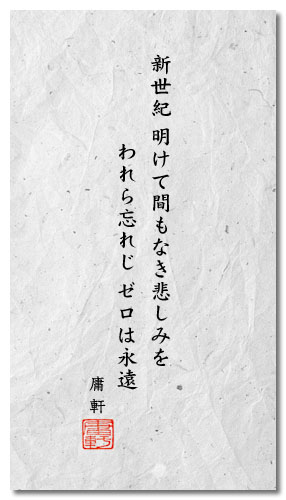 新世紀 明けて間もなき悲しみを
われら忘れじ ゼロは永遠
庸軒
庸軒